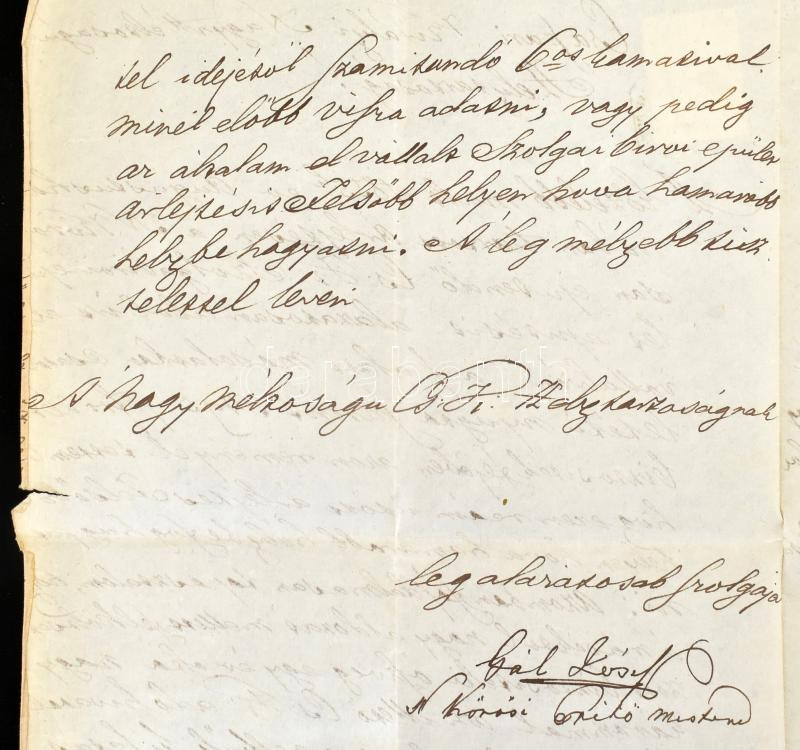 tel idejétöl számitandó 6os kamatival
minél előbb visza adatni, vagy pedig
az általam el vállalt Szolgai birói épület
árlejtésit Felsőbb helyen hova hamarább
helybe hagyatni. A leg mélyebb tisz
telettel lévén
A nagy méltóságu B. K. Helytartóságnak
leg alázatosab szolgája
Gál Jósef
N Körösi Épitö mester